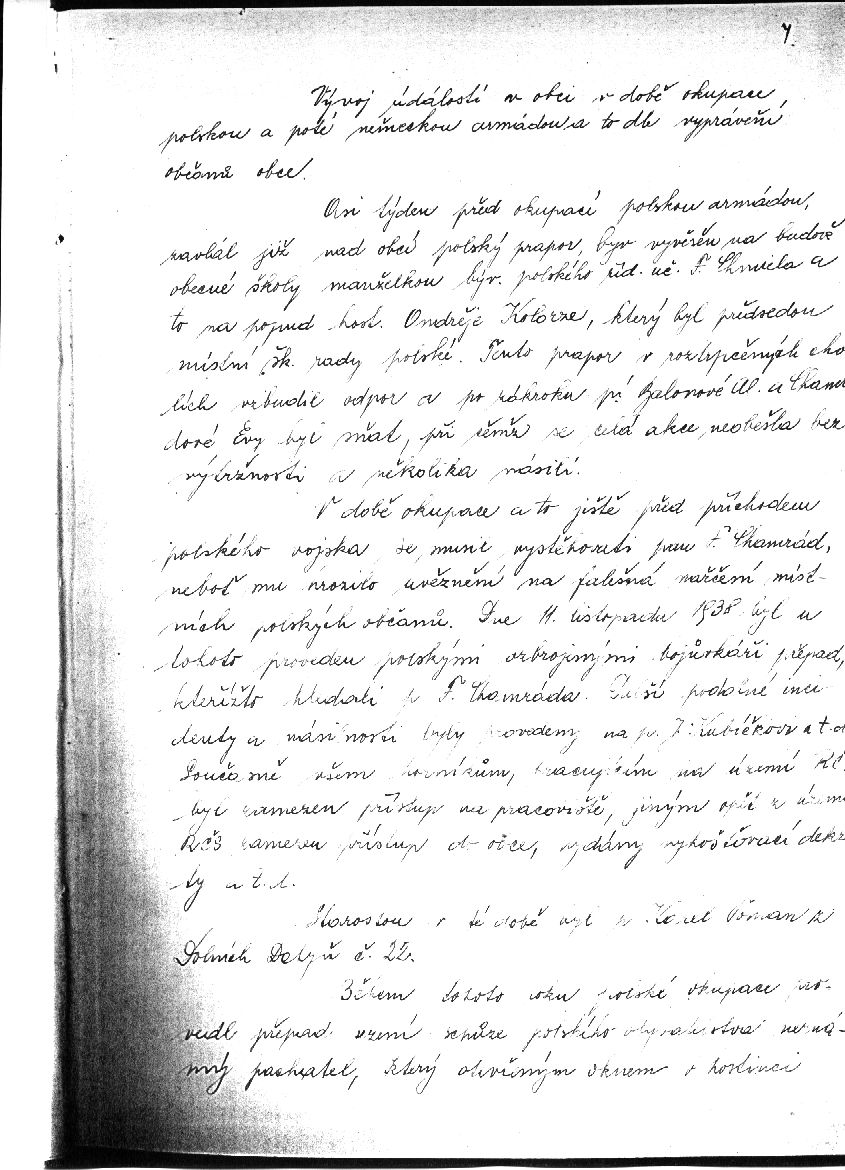 7.
Vývoj událostí v obci v době okupace,
polskou a poté německou armádou a to dle vyprávění
občanů obce.
Asi týden před okupací polskou armádou,
zavlál již nad obcí polský prapor, byv vyvěšen na budově
obecné školy manželkou býv. polského říd. uč. F. Chmiela a
to na popud host. Ondřeje Kolorze, který byl předsedou
místní šk. rady polské. Tento prapor v roztrpčených cho
lích vzbudil odpor a po zákroku pí Balonové Al. a Chamr
dové Evy byl sňat, při čemž se celá akce neobešla bez
výtržností a několika násilí.
V době okupace a to ještě před příchodem
polského vojska se musil vystěhovati pan F. Chamrád,
neboť mu hrozilo uvěznění na falešná nařčení míst-
ních polských občanů. Dne 11. listopadu 1938 byl u
tohoto proveden polskými ozbrojenými bojůvkáři přepad,
kteřížto hledali p F. Chamráda. Další podobné inci-
denty a násilnosti byly provedeny na p. J. Kubíčkovi a t.d
Současně všem horníkům, pracujícím na území RČ
byl zamezen přístup na pracoviště, jiným opět z území
RČS zamezen přístup do obce, vydány vyhošťovací dekre
ty a t. d.
Starostou v té době byl p. Karel Roman z
Dolních Datyň č. 22.
Během tohoto roku polské okupace pro-
vedl přepad. území schůze polského obyvatelstva nezná-
mý pachatel, který otevřeným oknem v hostinci